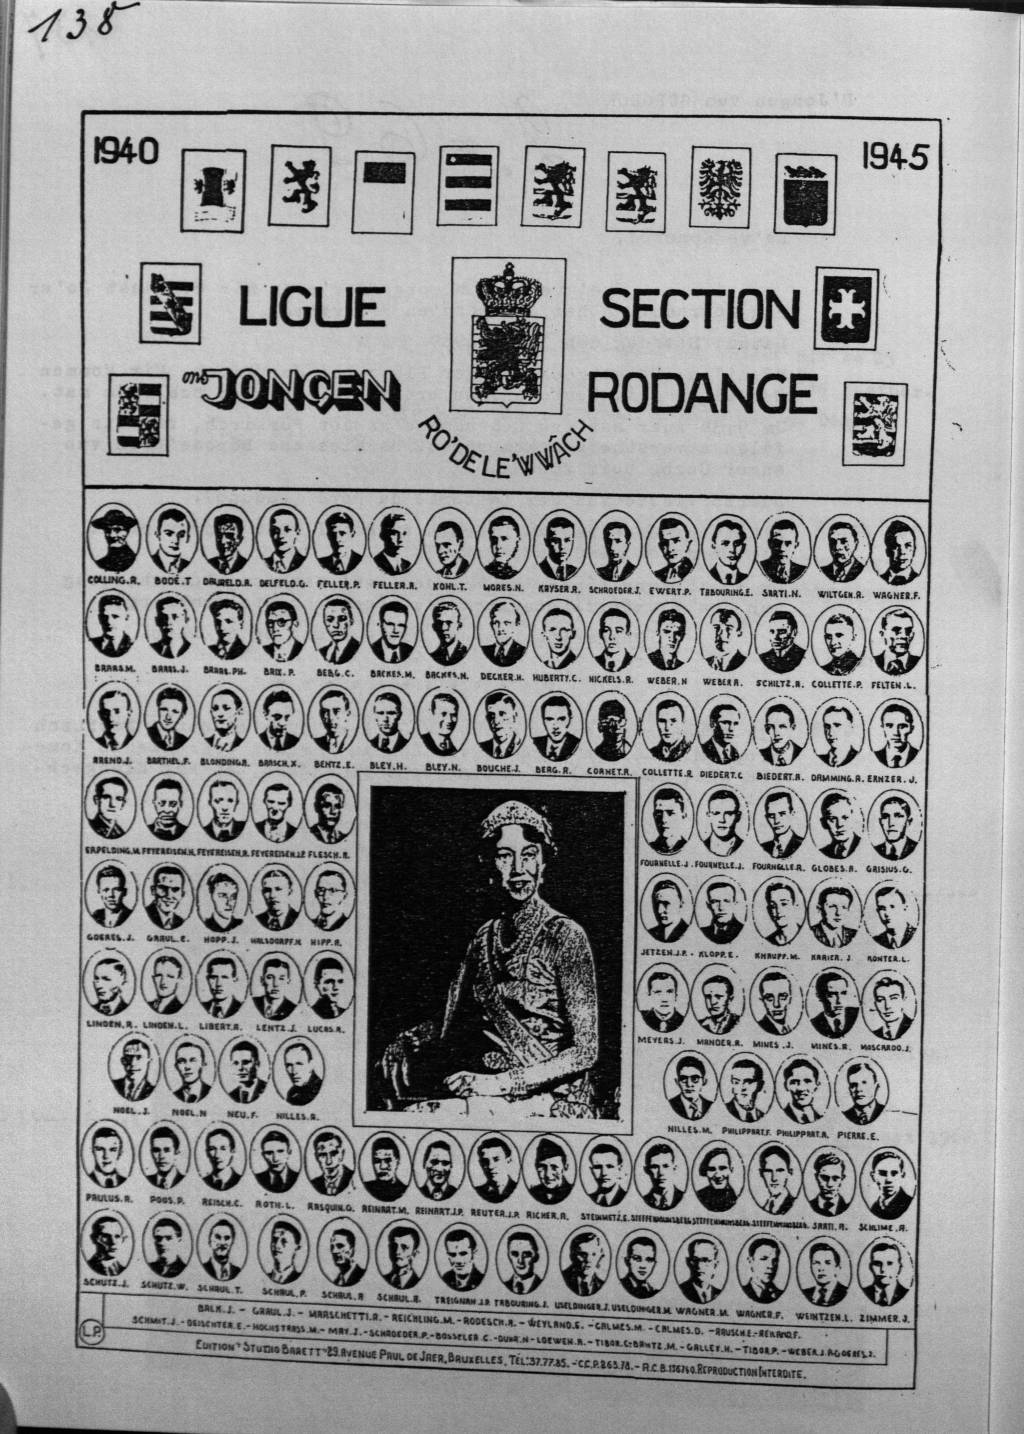 138
1940
1945
LIGUE
SECTION
ons JONGEN
RODANGE
RO'DELE'WWÂCH
COLLING.R. BODÉ.T DAUBELD.R. DELFELD.G. FELLER.P. FELLER.R. KOHL.T. MORES.N. KAYSER.R. SCHROEDER.J. EWERT.P. TABOURING.E. SARTI.N. WILTGEN.A. WAGNER.F.
BRAAS.M. BRAAS.J. BRAAS.PH. BRIX.P. BERG.C. BACKES.M. BACKES.N. DECKER.H. HUBERTY.C. NICKELS.R. WEBER.N WEBER A. SCHILTZ.A. COLLETTE.P. FELTEN.L.
AREND.J. BARTHEL.F. BLONDING.R. BRASCH.X. BENTZ.E. BLEY.H. BLEY.N. BOUCHE.J. BERG.R. CORNET.R. COLLETTE.R DIEDERT.C BIEDERT.A. DAMMING.A. ERNZER.J.
ERPELDING.M. FEYEREISEN.H. FEYEREISEN.R. FEYEREISEN.J.P. FLESCH.R.
FOURNELLE.J. FOURNELLE.J. FOURNELLE.R. GLOBES.A. GRISIUS.G.
GOERES.J. GRAUL.E. HOPP.J. HALSDORFF.N HIPP.R.
JETZEN.J.P. KLOPP.E. KNAUFF.M. KARIER.J. KONTER.L.
LINDEN.R. LINDEN.L. LIBERT.A. LENTZ.J. LUCAS.R.
MEYERS.J. MANDER.R. MINES.J. MINES.R. MOSCARDO.J.
NOEL.J. NOEL.N NEU.F. NILLES.R.
NILLES.M. PHILIPPART.F. PHILIPPART.A. PIERRE.E.
PAULUS.R. POOS.P. REISCH.C. ROTH.L. RASQUIN.G. REINART.M. REINART.J.P. REUTER.J.P. RICHER.A. STEINMETZ.E. SARTI.A. SCHLIME.A.
SCHUTZ.J. SCHUTZ.W. SCHAUL.T. SCHAUL.P. SCHAUL.A SCHAUL.R. TREIGNAN.J.P. TABOURING.J. USELDINGER.J. USELDINGER.M. WAGNER.M. WAGNER.F. WEINTZEN.L. ZIMMER.J.
BALK.J. - GRAUL.J. - MARSCHETTI.R. - REICHLING.M. - RODESCH.A. - WEYLAND.E. - CALMES.M. - CALMES.D. - RAUSCH.E. - REILAND.F.
SCHMIT.J. - DEISCHTER.E. - HOCHSTRASS.M. - MAY.J. - SCHROEDER.P. - BOSSELER.C. - DUHR.N - LOEWEN.A. - TIBOR.C. - BANTZ.M. - GALLEY.H. - TIBOR.P. - WEBER.J.
L.P.
EDITION "STUDIO BARETT" 29.AVENUE PAUL DE JAER, BRUXELLES, TÉL:37.77.85. - C.C.P. 863.78. - R.C.B. 136740. REPRODUCTION INTERDITE.